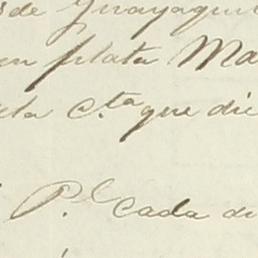 sde Guayaquil
en plata Ma
cta c.ta que die
P.l Cada di